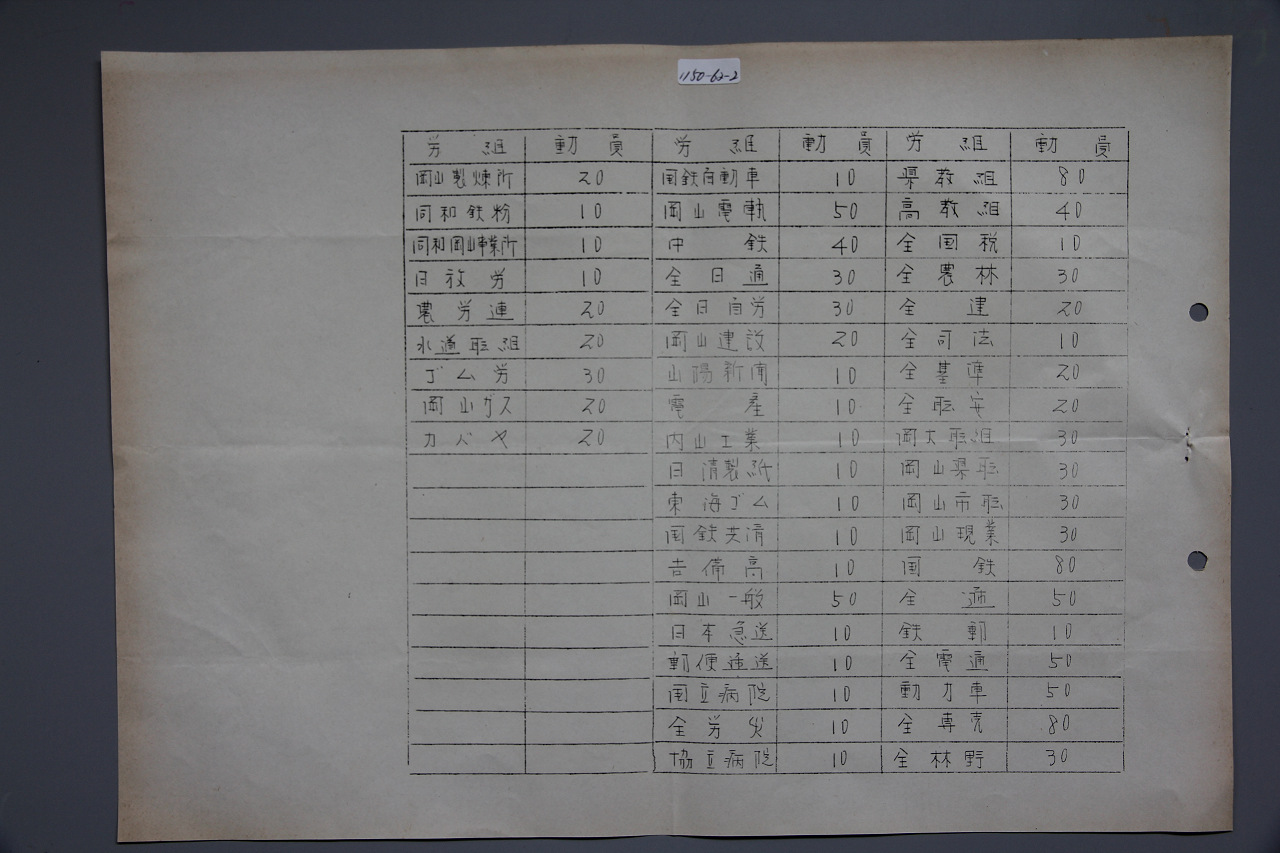 1150-62-2
労組 動員 労組 動員 労組 動員
岡山製煉所 20 国鉄自動車 10 県教組 80
同和鉄粉 10 岡山電軌 50 高教組 40
同和岡山事業所 10 中鉄 40 全国税 10
日放労 10 全日通 30 全農林 30
農労連 20 全日自労 30 全建 20
水道職組 20 岡山建設 20 全司法 10
ゴム労 30 山陽新聞 10 全基準 20
岡山ガス 20 電産 10 全職安 20
カバヤ 20 内山工業 10 岡大職組 30
日清製紙 10 岡山県職 30
東海ゴム 10 岡山市職 30
国鉄共済 10 岡山現業 30
吉備高 10 国鉄 80
岡山一般 50 全逓 50
日本急送 10 鉄郵 10
郵便逓送 10 全電通 50
国立病院 10 動力車 50
全労災 10 全専売 80
協立病院 10 全林野 30